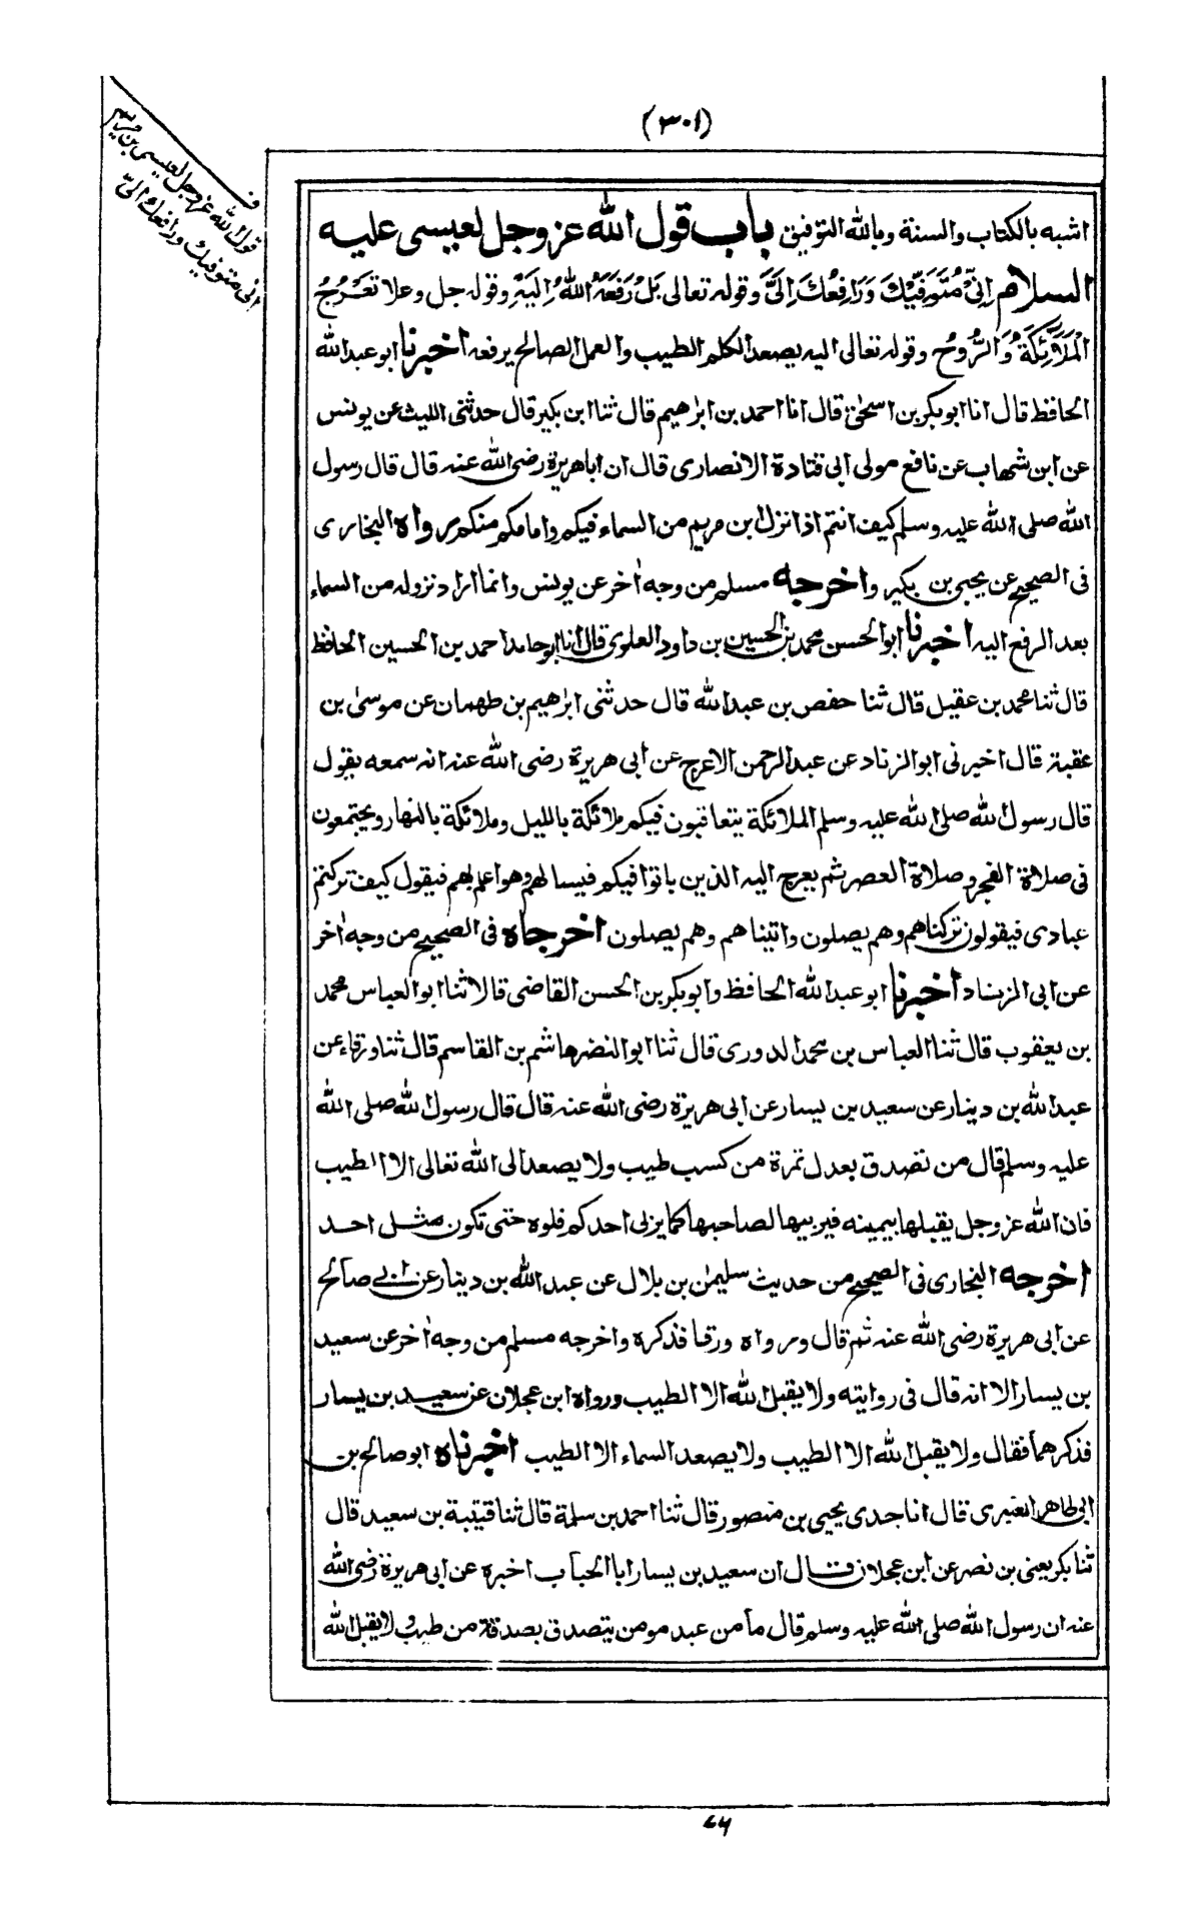 (٣٠١)
ف
قول الله عز وجل لعيسى بن مريم
انى متوفيك ورافعك الىّ
اشبه بالكتاب والسنة وبالله التوفيق باب قول الله عز وجل لعيسى عليه
السلام اِنِّىْ مُتَوَفِّيْكَ وَرَافِعُكَ اِلَىَّ وقوله تعالى بَلْ رَفَعَهُ اللهُ اِلَيْهِ وقوله جل وعلا تَعْرُجُ
الْمَلَائِكَةُ وَالرُّوْحُ وقوله تعالى اليه يصعد الكلم الطيب والعمل الصالح يرفعه اخبرنا ابو عبد الله
الحافظ قال انا ابو بكر بن اسحٰق قال انا احمد بن ابرٰهيم قال ثنا ابن بكير قال حدثنى الليث عن يونس
عن ابن شهاب عن نافع مولى ابى قتادة الانصارى قال ان اباهريرة رضى الله عنه قال قال رسول
الله صلى الله عليه وسلم كيف انتم اذا نزل ابن مريم من السماء فيكم وامامكم منكم رواه البخارى
فى الصحيح عن يحيى بن بكير واخرجه مسلم من وجه اٰخر عن يونس وانما اراد نزوله من السماء
بعد الرفع اليه اخبرنا ابو الحسن محمد بن الحسين بن داود العلوى قال انا ابو حامد احمد بن الحسين الحافظ
قال ثنا محمد بن عقيل قال ثنا حفص بن عبد الله قال حدثنى ابرٰهيم بن طهمان عن موسىٰ بن
عقبة قال اخبرنى ابو الزناد عن عبد الرحمن الاعرج عن ابى هريرة رضى الله عنه انه سمعه يقول
قال رسول الله صلى الله عليه وسلم الملائكة يتعاقبون فيكم ملائكة بالليل وملائكة بالنهار ويجتمعون
فى صلاة الفجر وصلاة العصر ثم يعرج اليه الذين باتوا فيكم فيسالهم وهو اعلم بهم فيقول كيف تركتم
عبادى فيقولون تركناهم وهم يصلون واتيناهم وهم يصلون اخرجاه فى الصحيح من وجه اٰخر
عن ابى الزناد اخبرنا ابو عبد الله الحافظ وابو بكر بن الحسن القاضى قالا ثنا ابو العباس محمد
بن يعقوب قال ثنا العباس بن محمد الدورى قال ثنا ابو النضر هاشم بن القاسم قال ثنا ورقاء عن
عبد الله بن دينار عن سعيد بن يسار عن ابى هريرة رضى الله عنه قال قال رسول الله صلى الله
عليه وسلم قال من تصدق بعدل تمرة من كسب طيب ولا يصعد الى الله تعالى الا الطيب
فان الله عز وجل يقبلها بيمينه فيربيها لصاحبها كما يربى احدكم فلوه حتى تكون مثل احد
اخرجه البخارى فى الصحيح من حديث سليمٰن بن بلال عن عبد الله بن دينار عن ابى صالح
عن ابى هريرة رضى الله عنه ثم قال ورواه ورقا فذكره واخرجه مسلم من وجه اٰخر عن سعيد
بن يسار الا انه قال فى روايته ولا يقبل الله الا الطيب ورواه ابن عجلان عن سعيد بن يسار
فذكرهما فقال ولا يقبل الله الا الطيب ولا يصعد السماء الا الطيب اخبرناه ابو صالح بن
ابى طاهر العنبرى قال انا جدى يحيى بن منصور قال ثنا احمد بن سلمة قال ثنا قتيبة بن سعيد قال
ثنا بكر يعنى بن نصر عن ابن عجلان قال ان سعيد بن يسار ابا الحباب اخبره عن ابى هريرة رضى الله
عنه ان رسول الله صلى الله عليه وسلم قال ما من عبد مومن يتصدق بصدقة من طيب ولا يقبل الله